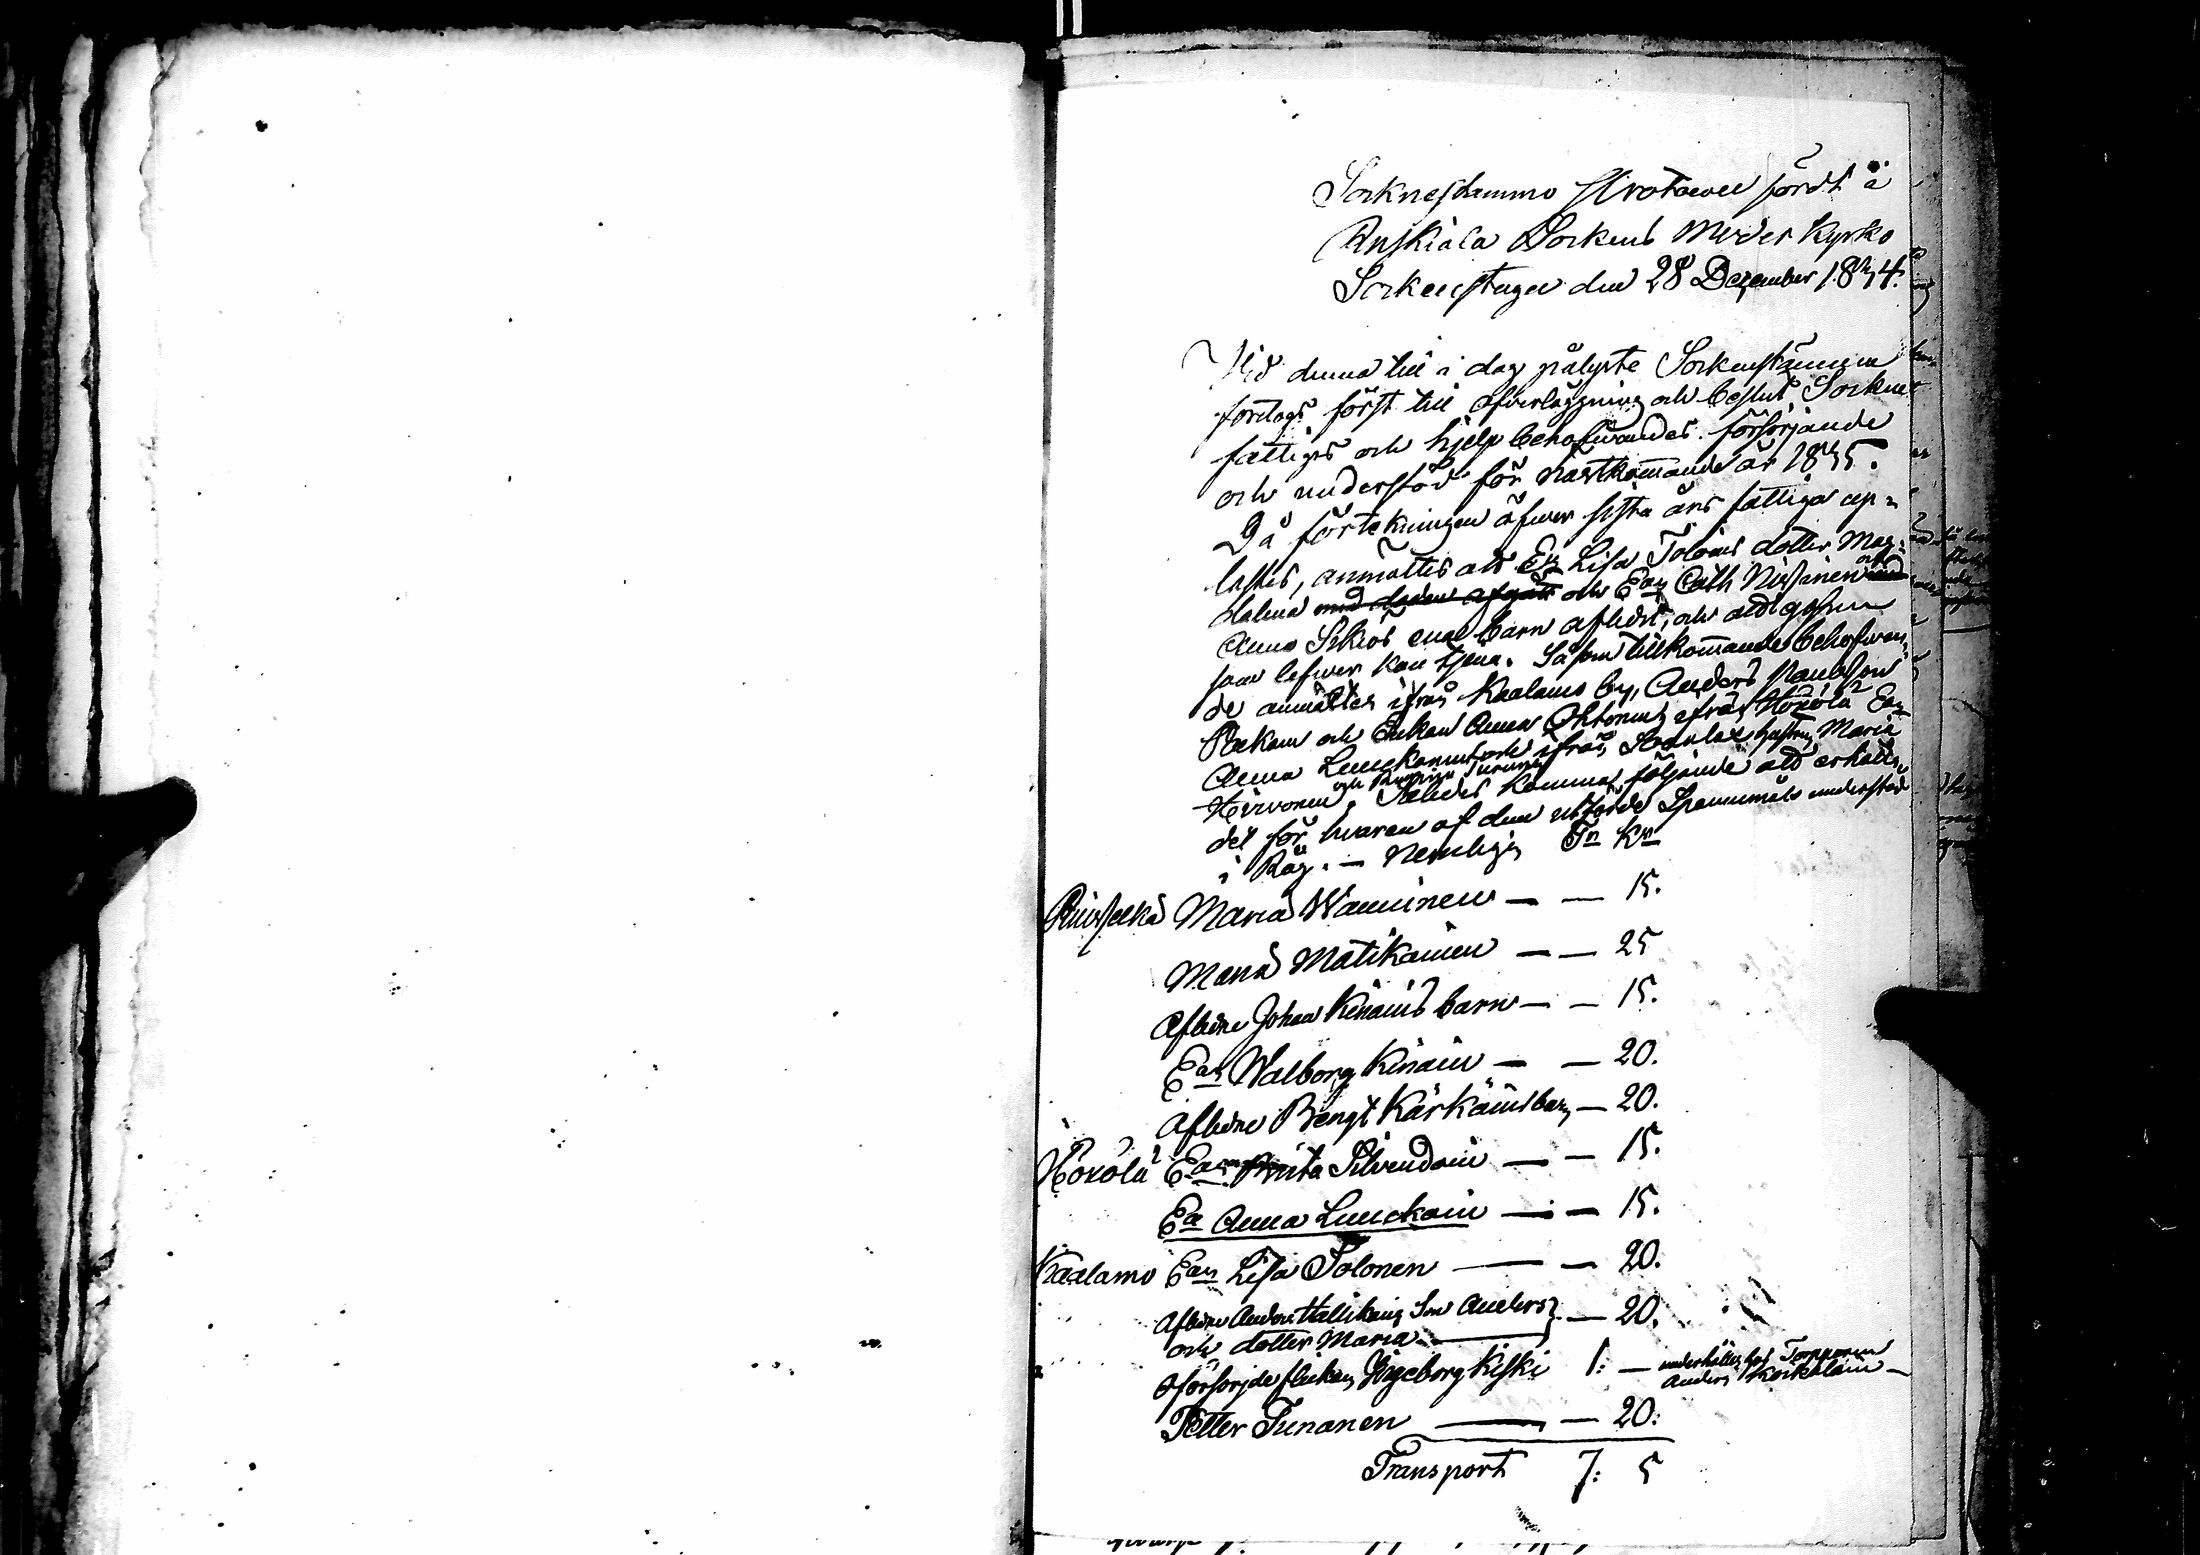 Sorknestämmo Protocoll fördt å
Ruskiala Sockens Moder Kyrko
Sockenstugu den 28 December 1834.
Wid denna till i dag pålyste Sockenstämma
fortogs först till öfverläggning och beslut, Sockne
fattigas och hjelp behöfwandes försörjande
och understöd för nästkom̄ande år 1835.
Då förtekningen öfwer sista års fattiga up-
lästes, anmältes att Ea Lisa Toloins dotter Mag-
dalena med döden afgått och Ean Cath Nissinen
Anna Sikiös ena barn aflidit, och att gossen
som lefwer kan tjena. Såsom tillkom̄ande behöfwan-
de anmältes ifrån Kaalamo by, Anders Paulsson
Pakain och Enkan Anna Ohtoinen, ifrån Höxölä Ean
Anna Leuckanen och ifrån Soanlax hustru Maria
Hirvonen och Turunen. Således komma följande att erhålla
det för hwaren af dem utförde Spannmåls understöd
i Råg. — Nemligen Tn Kr
Ruisselkä Maria Wänninen — — 15.
Maria Matikainen — — 25
Aflidne Johan Kinains barn — — 15.
Ean Walborg Kinain — — 20.
Aflidne Bengt Kärkäins barn — 20.
Höxölä Ean Brita Silvendoin — — 15.
Ea Anna Leuckain — — 15.
Kaalamo Ean Lisa Tolonen — — 20.
Aflidne Anders Hallikains Son Anders} — 20.
och dotter Maria —
Oförsörjde flickan Ingeborg Kiski 1: — underhålles hos Torpparen
Anders Korkalain —
Petter Turanen — — 20:
Transport 7: 5